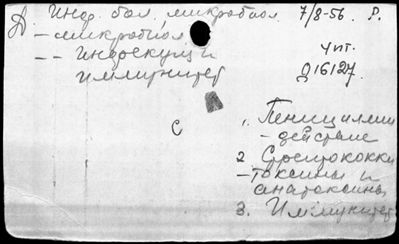 Инф. бол. микробиол. 7/8-56. Р.
Д - микробиол.
- - инфекции
иммунитет
чит.
Д16127.
С
1. Пенициллин
- действие
2 Стрептококки
- токсины и
анатоксины
3. Иммунитет